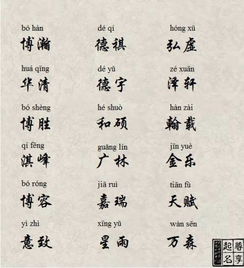 bó hàn dé qí hóng xū
博瀚 德棋 弘虚
huá qīng dé yǔ zé xuān
华清 德宇 泽轩
bó shèng hé shuò hàn zài
博胜 和硕 翰载
qí fēng guǎng lín jīn yuè
淇峰 广林 金乐
bó róng jiā ruì tiān fù
博容 嘉瑞 天赋
yì zhì xīng yǔ wàn sēn
意致 星雨 万森
起名